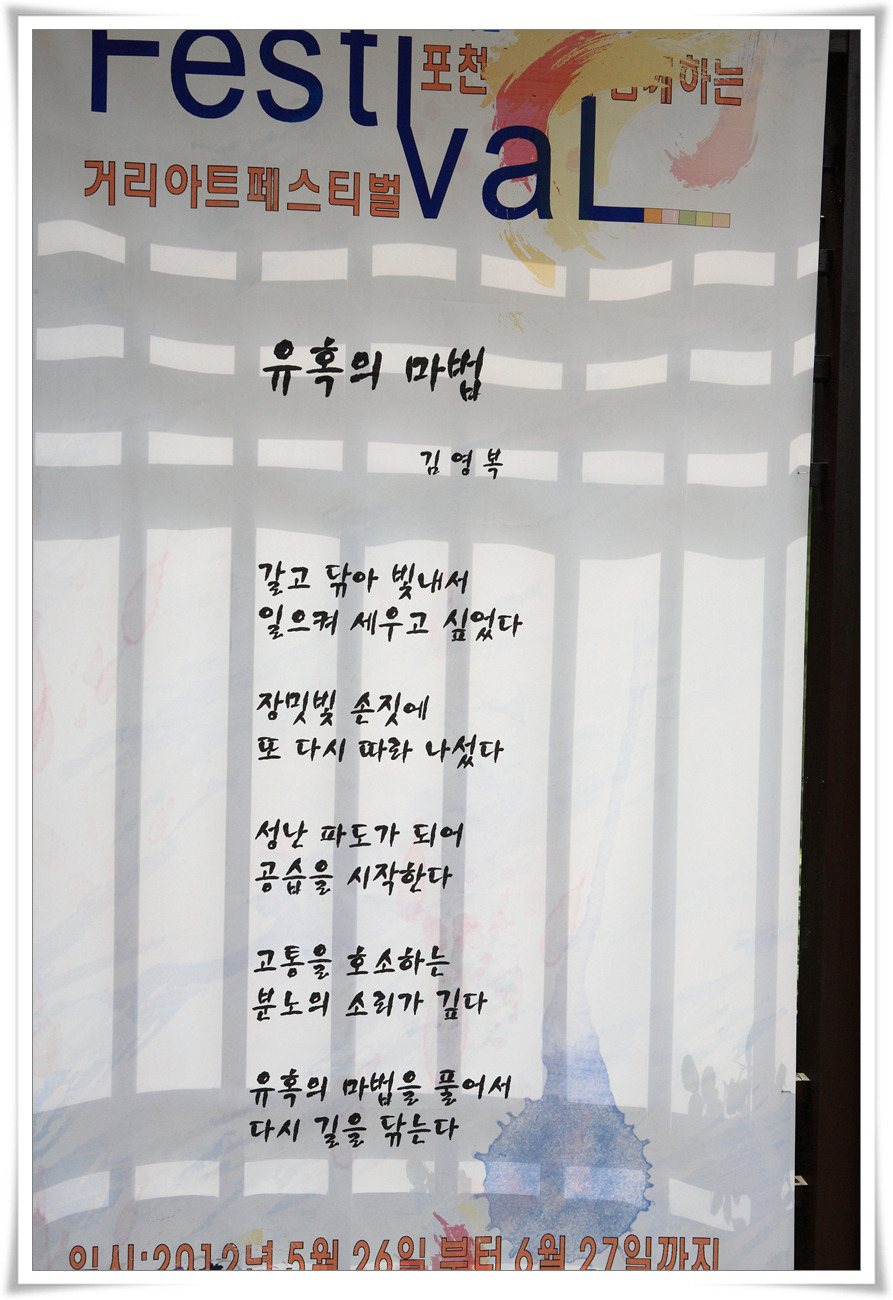 Festi
포천 함께하는
val
거리아트페스티벌
유혹의 마법
김영복
갈고 닦아 빛내서
일으켜 세우고 싶었다
장밋빛 손짓에
또 다시 따라 나섰다
성난 파도가 되어
공습을 시작한다
고통을 호소하는
분노의 소리가 깊다
유혹의 마법을 풀어서
다시 길을 닦는다
일시:2012년 5월 26일 부터 6월 27일까지